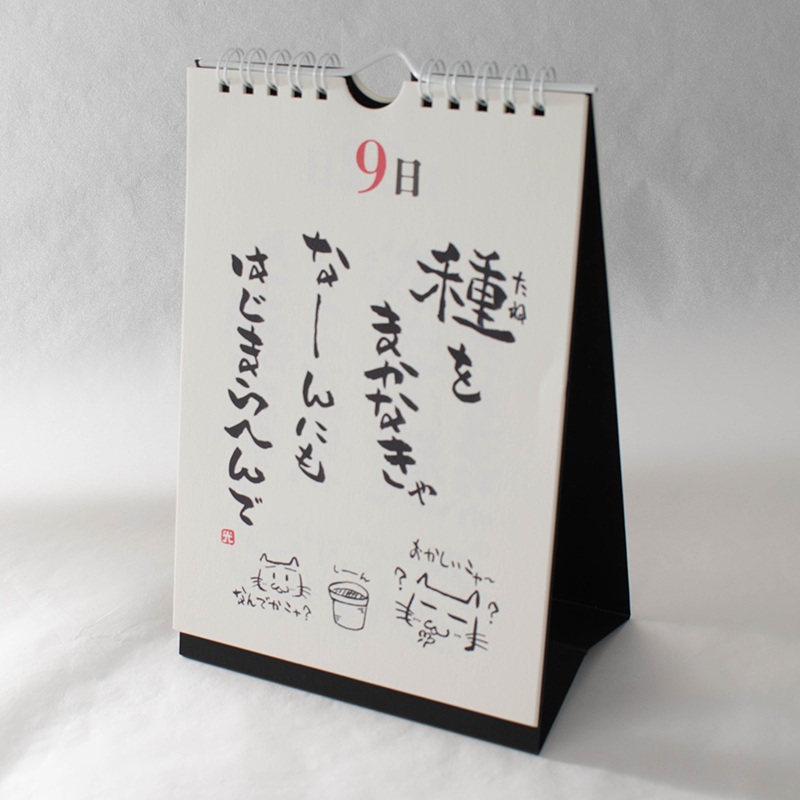 9日
種を
たね
まかなきゃ
なーんにも
はじまらへんで
光
おかしいニャ〜
? ?
しーん
なんでかニャ?